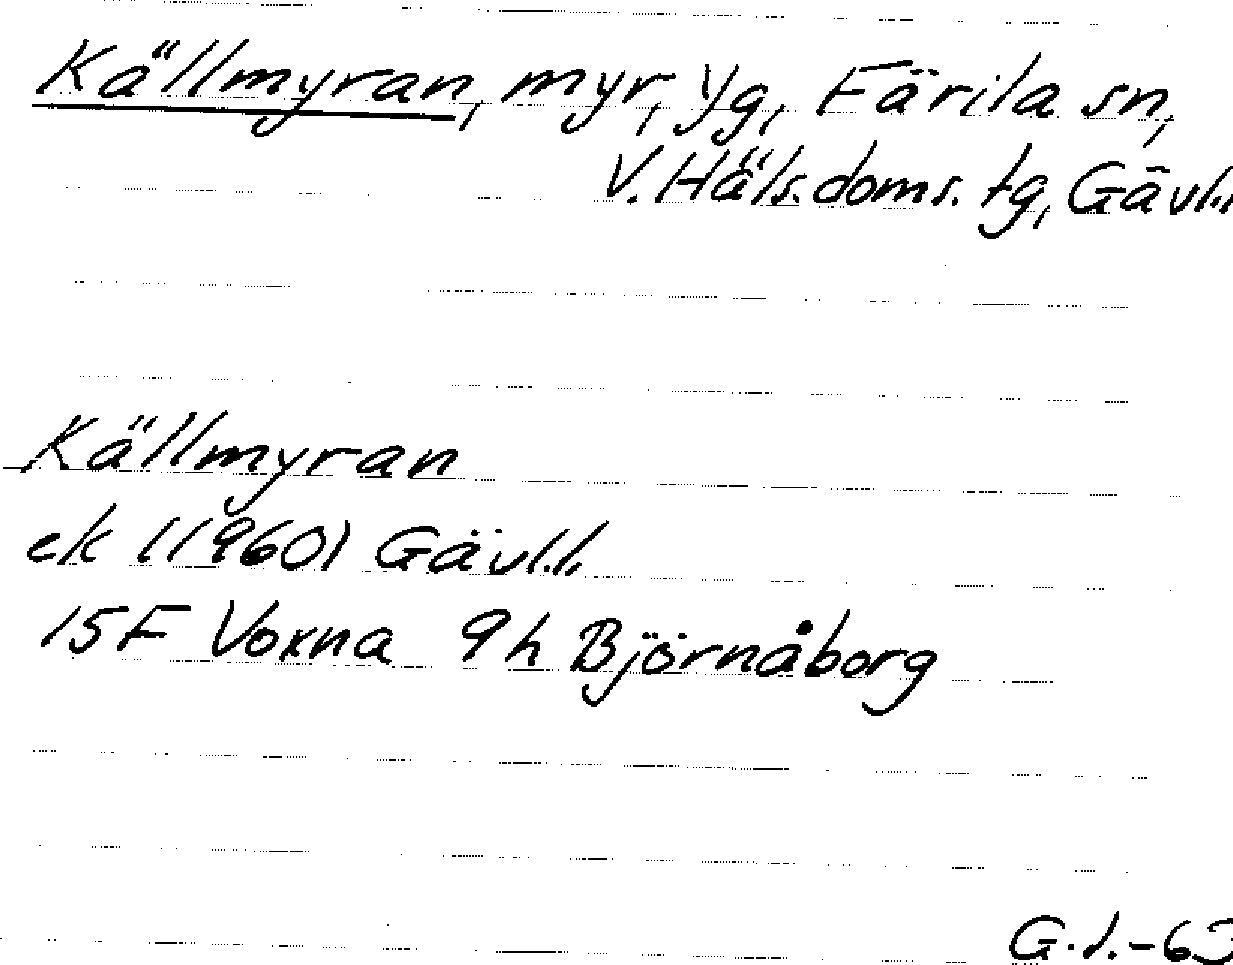 Källmyran, myr, yg, Färila sn,
V. Häls. doms. tg, Gävl.l
Källmyran
ek (1960) Gävl.l.
15F Voxna 9h Björnåborg